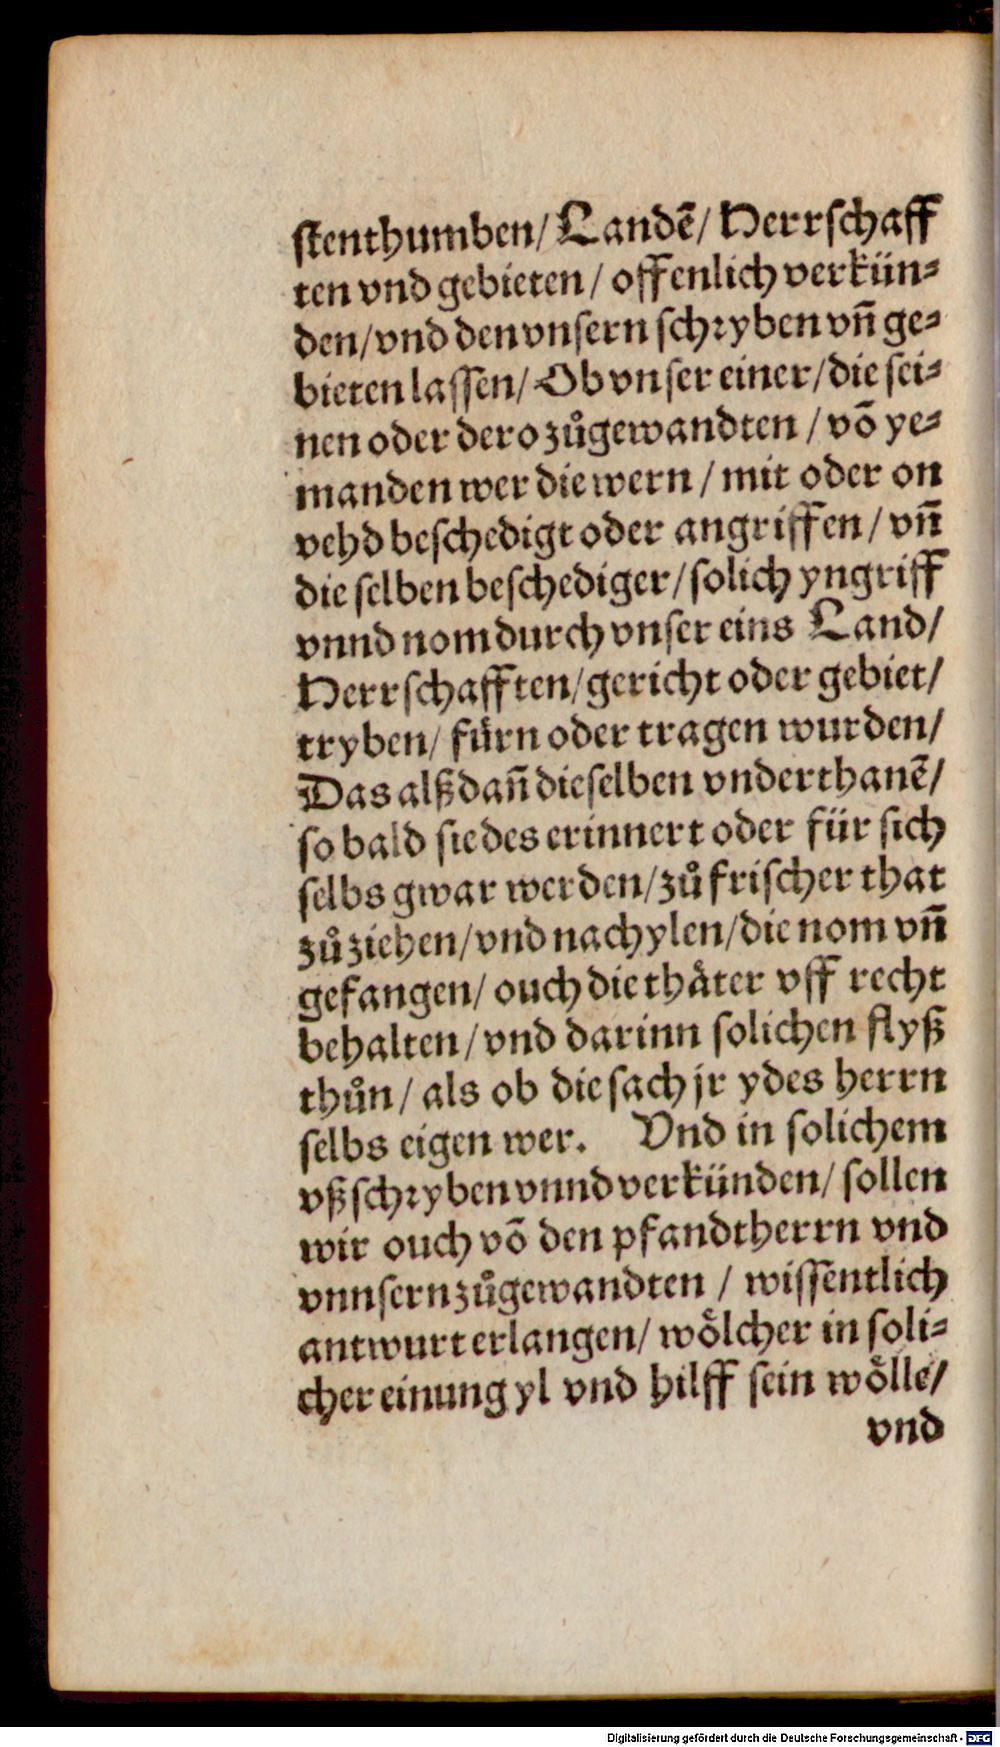 ſtenthumben/ Landē/ Herrſchaff
ten vnd gebieten / offenlich verkün⸗
den/vnd den vnſern ſchꝛyben vn̄ ge⸗
bieten laſſen/ Ob vnſer einer/die ſei⸗
nen oder dero zůgewandten / vō ye⸗
manden wer die wern / mit oder on
vehd beſchedigt oder angriffen / vn̄
die ſelben beſchediger/ſolich yngriff
vnnd nom durch vnſer eins Land/
Herrſchafften/gericht oder gebiet/
tryben/ fürn oder tragen wurden/
Das alßdan̄ dieſelben vnderthanē/
ſo bald ſie des erinnert oder für ſich
ſelbs gwar werden/zů friſcher that
zů ziehen/vnd nachylen/die nom vn̄
gefangen/ ouch die thäter vff recht
behalten/ vnd darinn ſolichen flyß
thůn / als ob die ſach jr ydes herrn
ſelbs eigen wer. Vnd in ſolichem
vßſchꝛyben vnnd verkünden/ ſollen
wir ouch vō den pfandtherrn vnd
vnnſern zůgewandten / wiſſentlich
antwurt erlangen/ wölcher in ſoli⸗
cher einung yl vnd hilff ſein wölle/
vnd
Digitalisierung gefördert durch die Deutsche Forschungsgemeinschaft - DFG